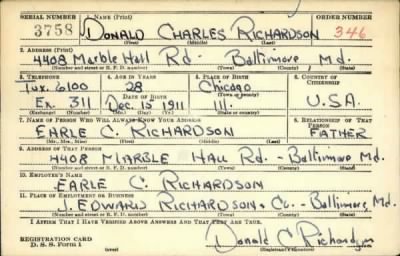 SERIAL NUMBER 1. NAME (Print) ORDER NUMBER
3758 DONALD CHARLES RICHARDSON 346
(First) (Middle) (Last)
2. ADDRESS (Print)
4408 Marble Hall Rd - Baltimore Md.
(Number and street or R. F. D. number) (Town) (County) (State)
3. TELEPHONE 4. AGE IN YEARS 5. PLACE OF BIRTH 6. COUNTRY OF CITIZENSHIP
Tux. 6100 28 Chicago
DATE OF BIRTH (Town or county)
Ex. 311 Dec. 15 1911 Ill. U.S.A.
(Exchange) (Number) (Mo.) (Day) (Yr.) (State or country)
7. NAME OF PERSON WHO WILL ALWAYS KNOW YOUR ADDRESS 8. RELATIONSHIP OF THAT PERSON
EARLE C. RICHARDSON FATHER
(Mr., Mrs., Miss) (First) (Middle) (Last)
9. ADDRESS OF THAT PERSON
4408 MARBLE HALL Rd. - Baltimore Md.
(Number and street or R. F. D. number) (Town) (County) (State)
10. EMPLOYER'S NAME
EARLE C. RICHARDSON
11. PLACE OF EMPLOYMENT OR BUSINESS
J. EDWARD RICHARDSON & Co. - Baltimore, Md.
(Number and street or R. F. D. number) (Town) (County) (State)
I AFFIRM THAT I HAVE VERIFIED ABOVE ANSWERS AND THAT THEY ARE TRUE.
REGISTRATION CARD
D. S. S. Form 1 (over) Donald C. Richardson
(Registrant's signature)